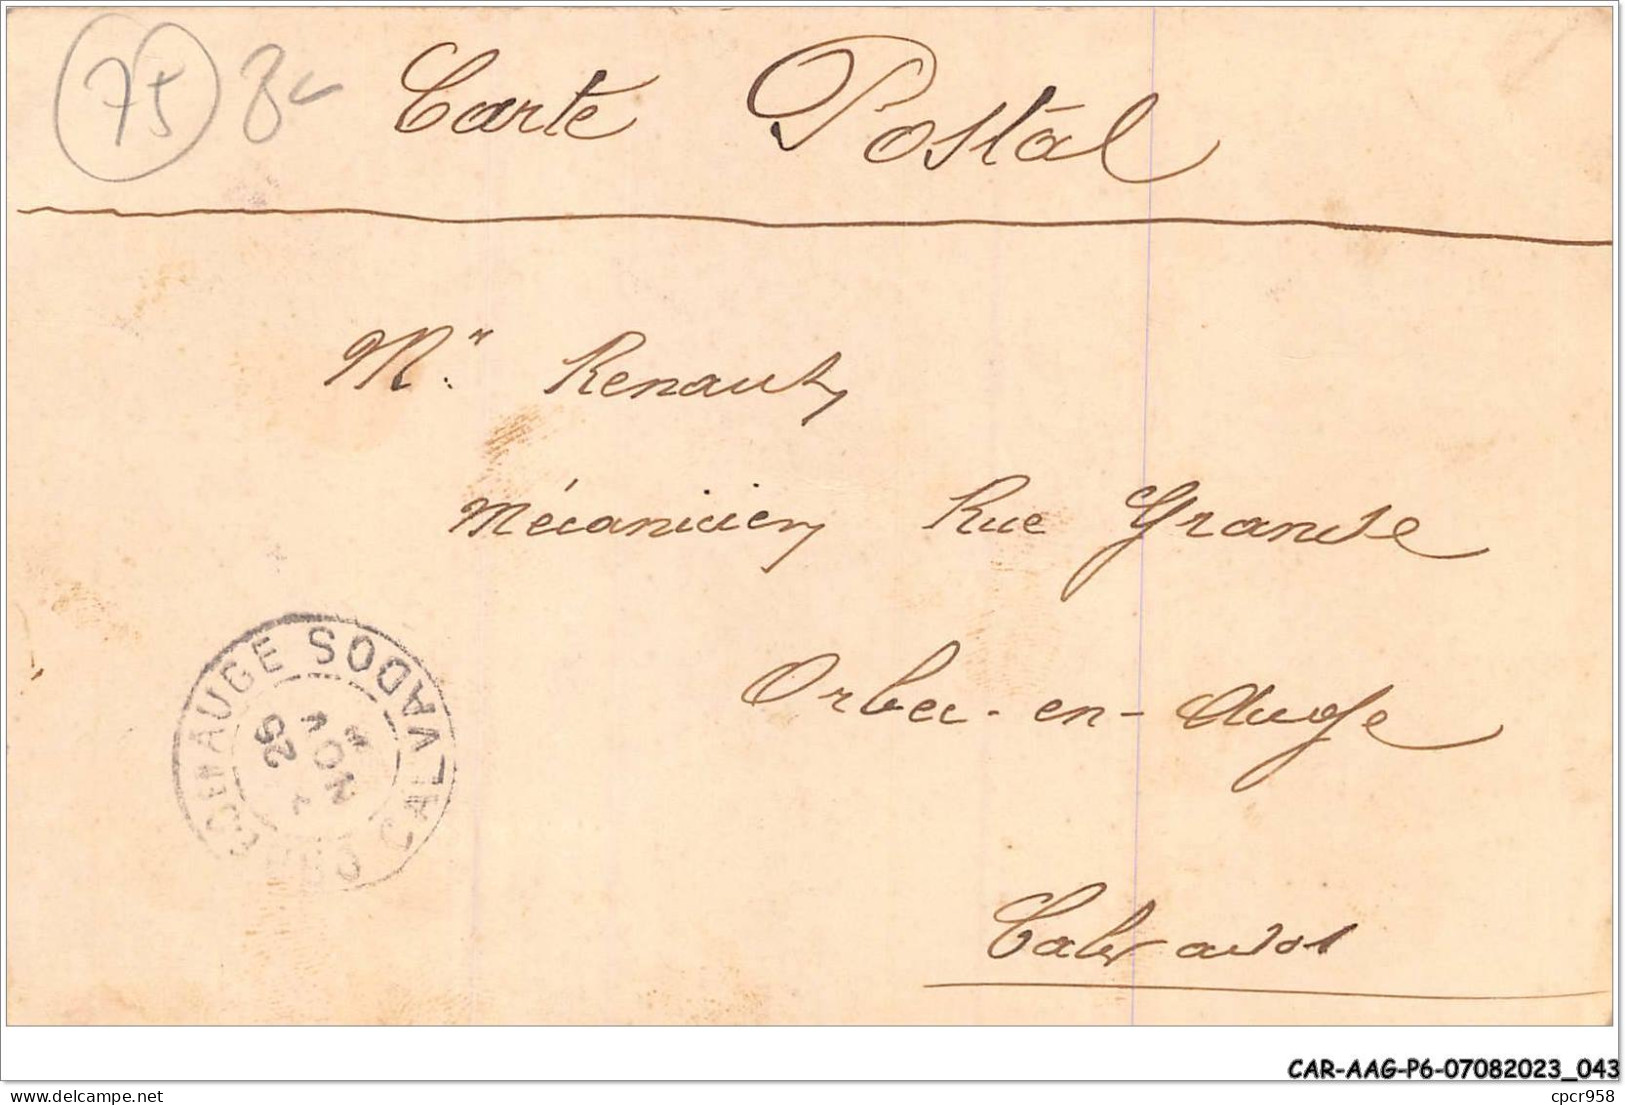 75 8
Carte Postal
Mr. Renault,
Mécanicien, Rue Grande
Orbec-en-Auge
Calvados
AUGE CALVADOS
NOV
25
CAR-AAG-P6-07082023_043
www.delcampe.net cpcr958